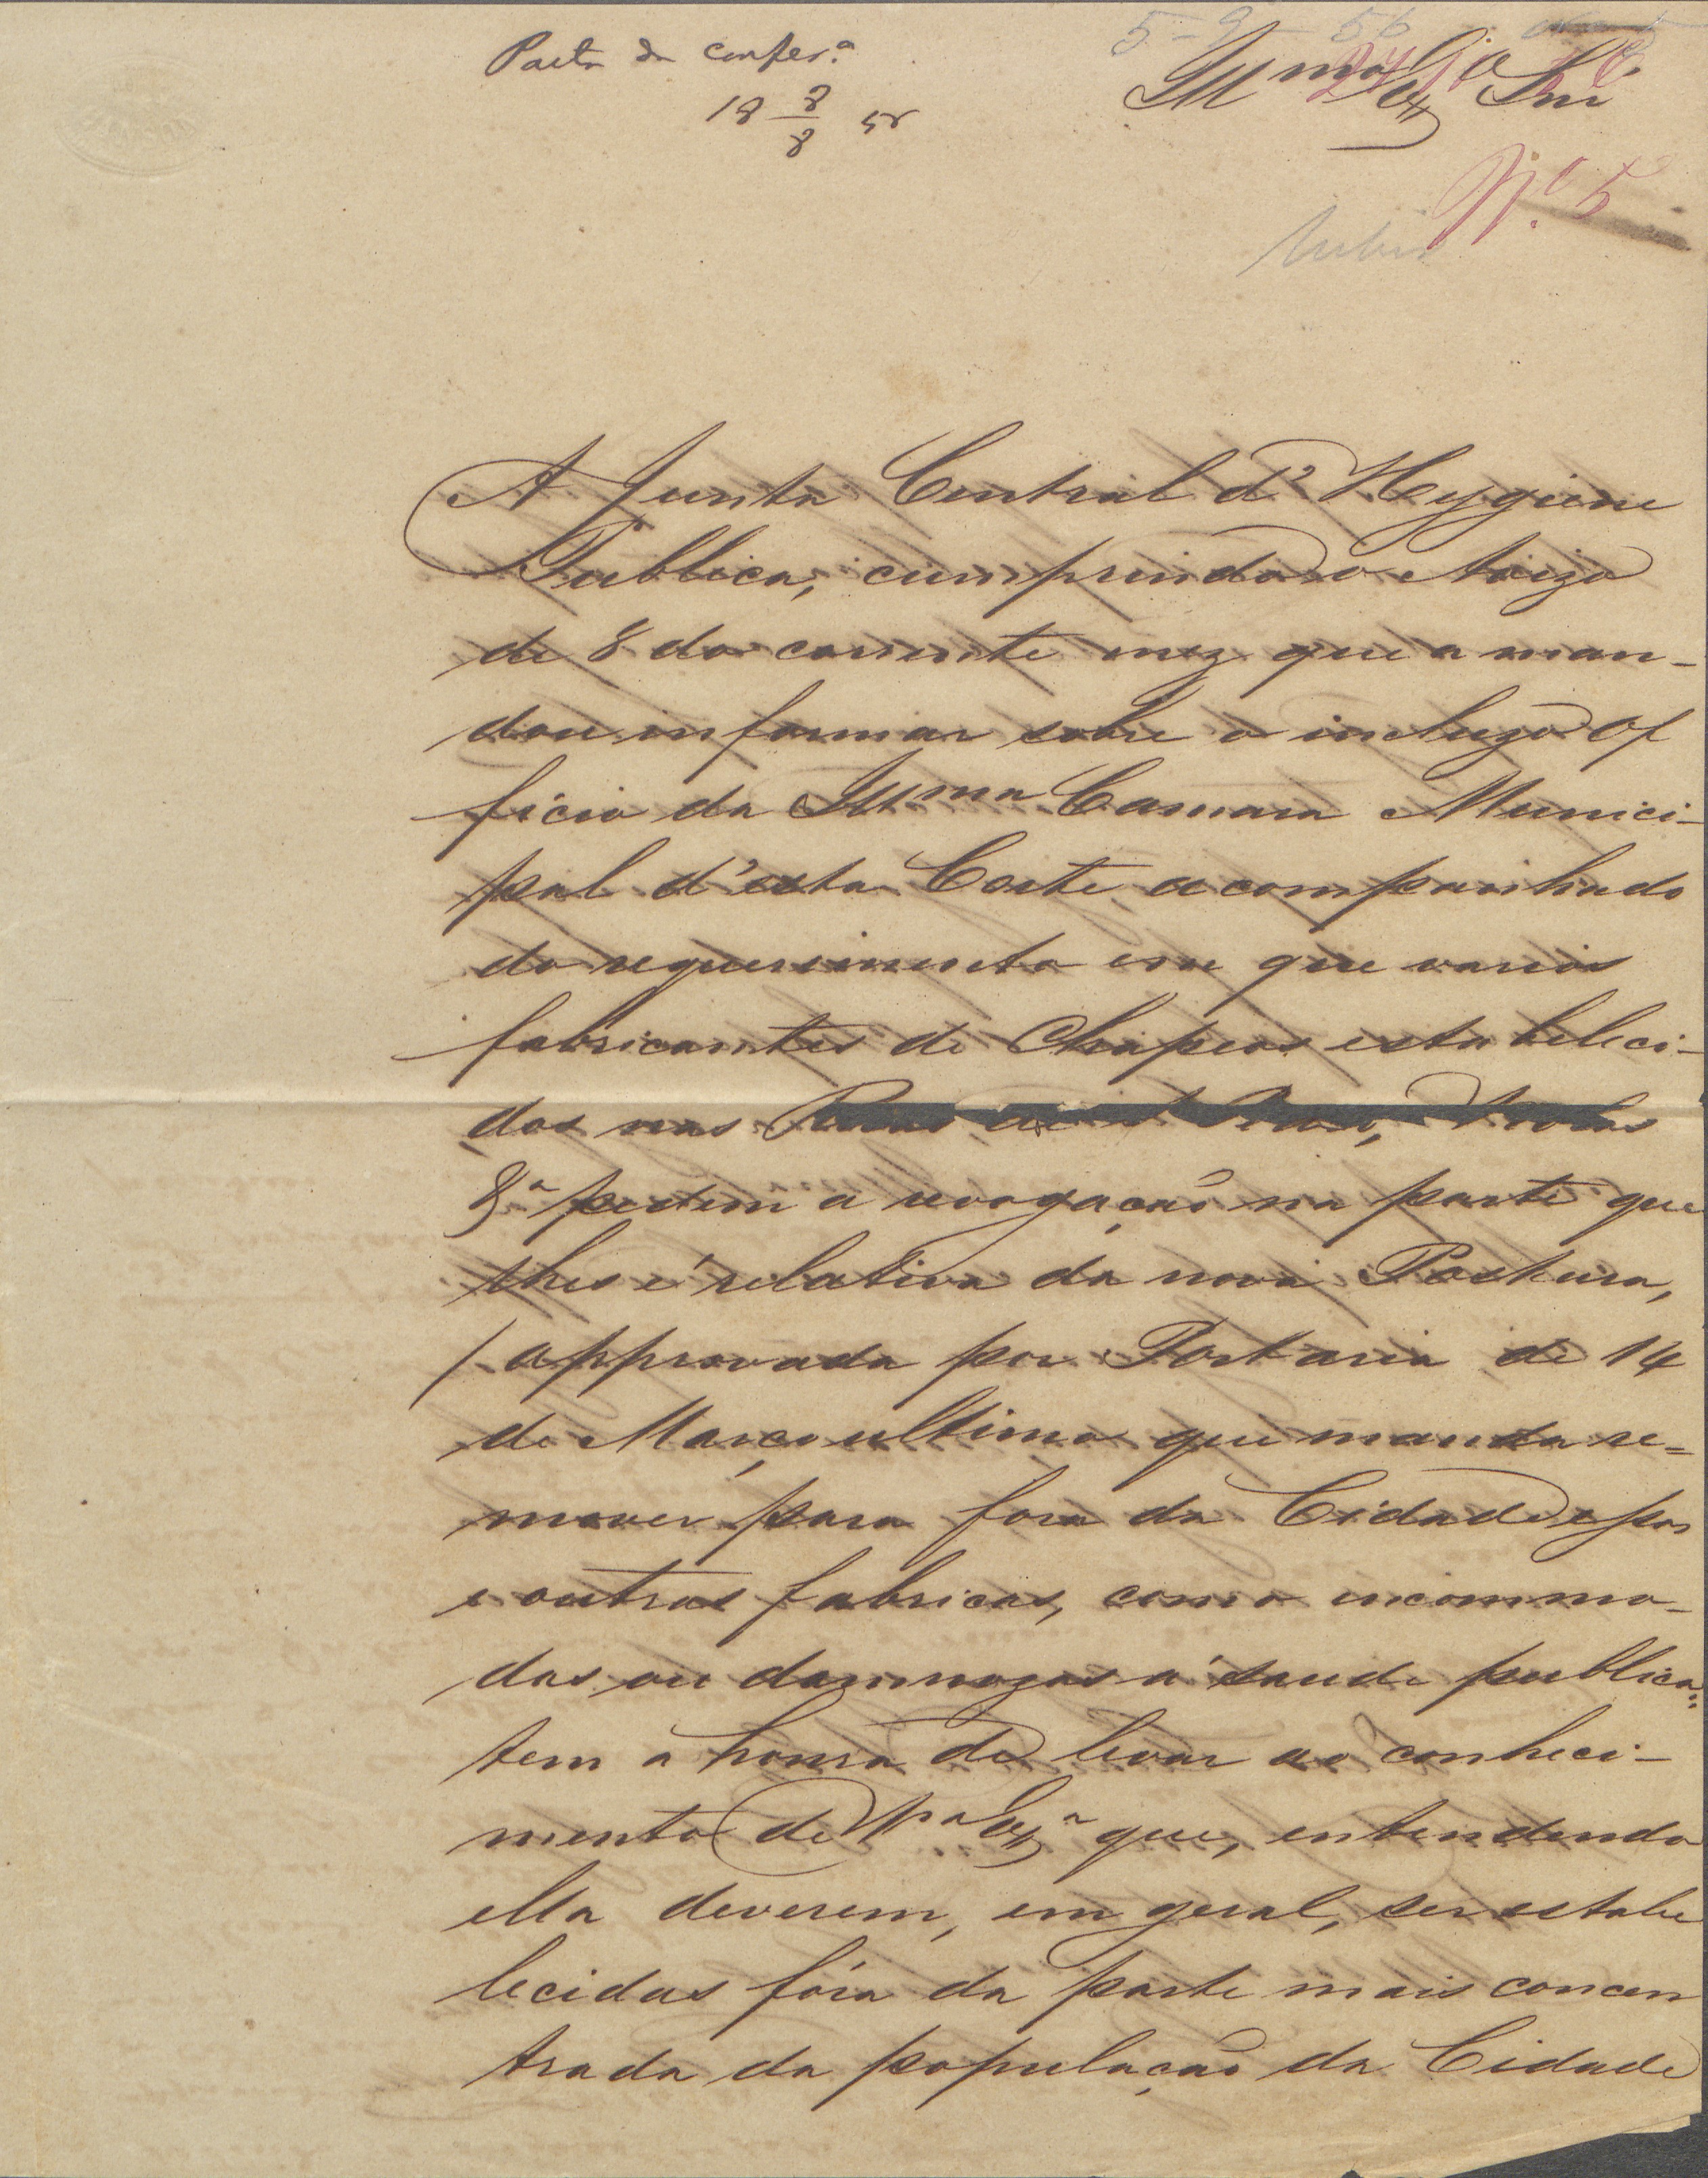 Pasta da confer.ª
18 8/8 56
Illmo Exmo Snr
Nº 5
A Junta Central d'Hygiene
Publica, cumprindo o Avizo
de 8 do corrente mez que a man-
dou informar sobre o incluzo Of
ficio da Illma Camara Munici-
pal d'esta Corte acompanhado
do requerimento em que varios
fabricantes de Chapeos estabeleci-
dos nas Ruas de S. Pedro, Violas
&ª pedem a revogação na parte que
lhes é relativa da nova Postura,
/ approvada por Portaria de 14
de Março ultimo que manda re-
mover para fora da Cidade essas
e outras fabricas, como incommo-
das ou damnozas á saude publica:
tem a honra de levar ao conheci-
mento de Vª Exª que, entendendo
ella deverem, em geral, ser estabe
lecidas fóra da parte mais concen
trada da população da Cidade